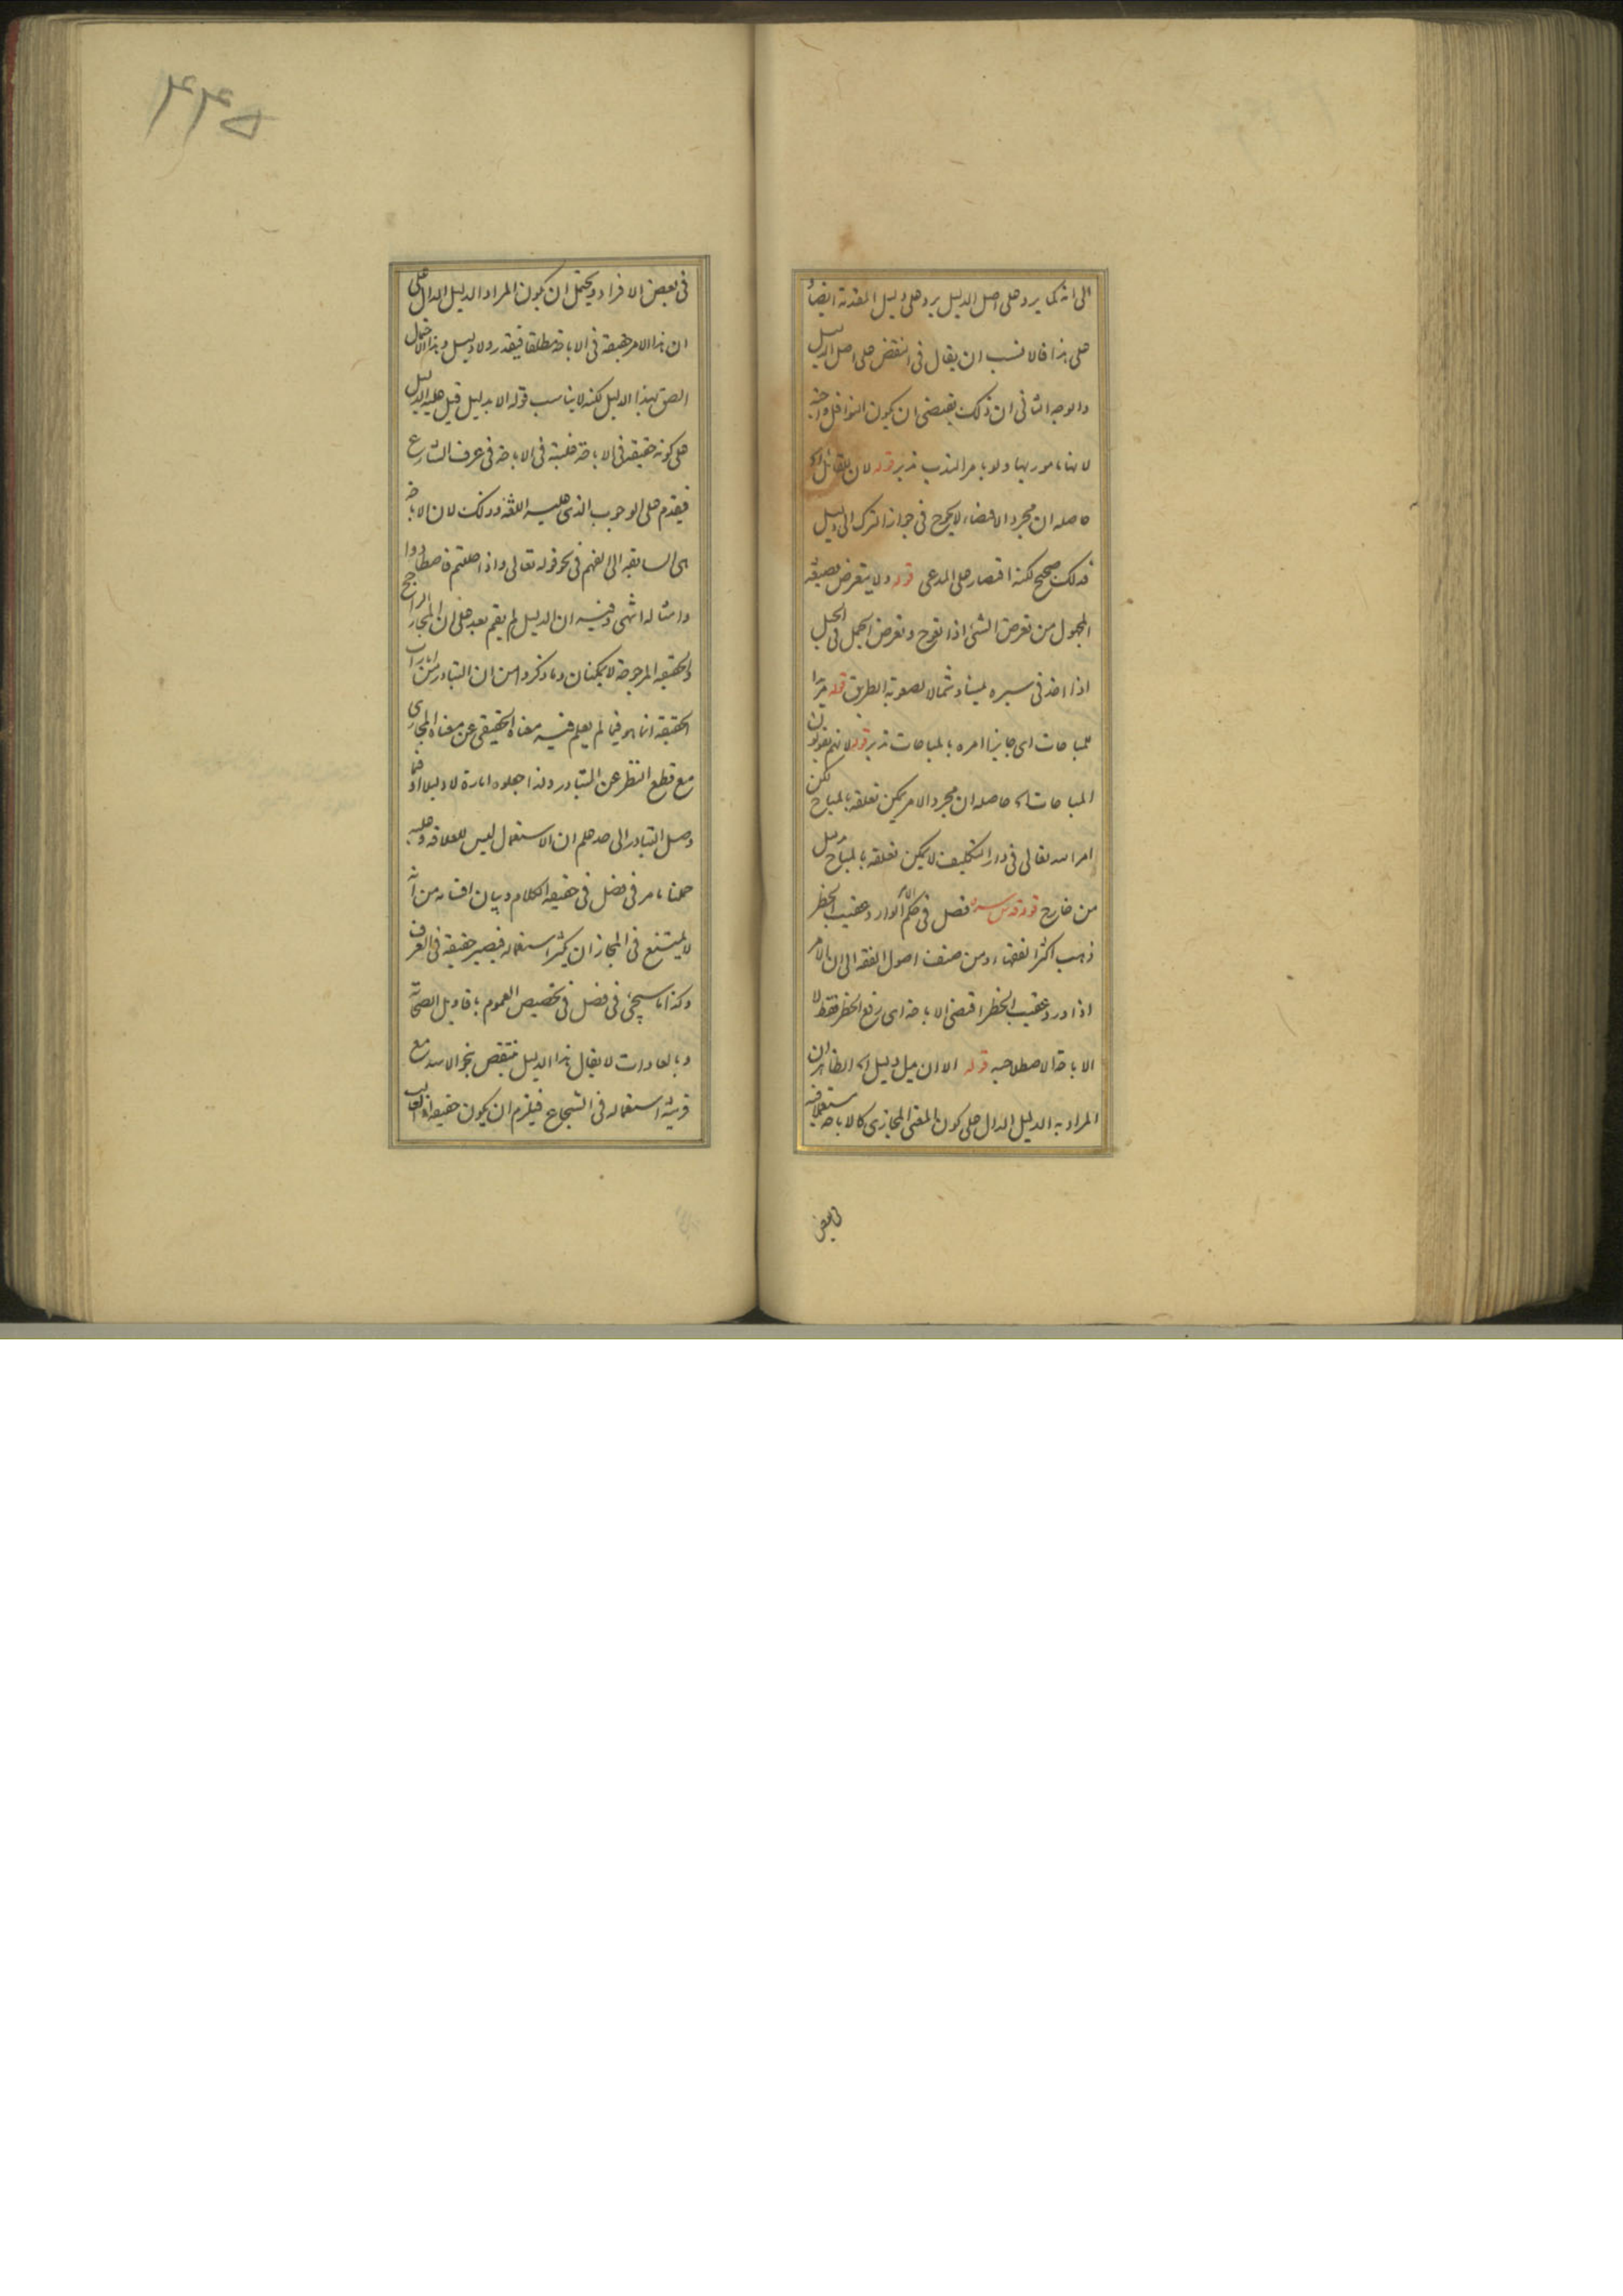 الى انه كما يرد على اصل الدليل يرد على دليل المقدمة ايضا و
على هذا فالانسب ان يقال فى النقض على اصل الدليل
والوجه الثانى ان ذلك يقتضى ان يكون النوافل واجبة
لانها مامور بها ولو بامر الندب تدبر قوله لان لقائل الخ
حاصله ان مجرد الاقتضاء لا يحوج فى جواز الترك الى دليل
فذلك صحيح لكنه اقتصار على المدعى قوله ولا يتعرض بصيغة
المجهول من تعرض الشئ اذا تعوج وتعرض الجمل فى الجبل
اذا اخذ فى سيره يمينا وشمالا لصعوبة الطريق قوله
للمباحات اى جايزا امره بالمباحات تدبر قوله لانهم يقولون
المباحات الخ حاصله ان مجرد الامر يمكن تعلقه بالمباح لكن
امر الله تعالى فى دار التكليف لا يمكن تعلقه بالمباح بدليل
من خارج قوله قدس سره فصل فى حكم الامر الوارد عقيب الحظر
ذهب اكثر الفقهاء ومن صنف اصول الفقه الى ان الامر
اذا ورد عقيب الحظر اقتضى الاباحة اى رفع الحظر فقط لا
الاباحة الاصطلاحية قوله الا ان يدل دليل الخ الظاهر ان
المراد به الدليل الدال على كون المعنى المجازى كالاباحة مستعملا فيه
فى بعض
٤٤٥
فى بعض الافراد ويحتمل ان يكون المراد الدليل الدال على
ان هذا الامر حقيقة فى الاباحة مطلقا فيقدر ولا دليل وهذا الاحتمال
الصق بهذا الدليل لكنه لا يناسب قوله الا بدليل قيل عليه الدليل
على كونه حقيقة فى الاباحة غلبته فى الاباحة فى عرف الشارع
فيقدم على الوجوب الذى عليه اللغة وذلك لان الاباحة
هى السابقة الى الفهم فى نحو قوله تعالى واذا حللتم فاصطادوا
وامثاله انتهى وفيه ان الدليل لم يقم بعد على ان المجاز الراجح
والحقيقة المرجوحة لا يمكنان وما ذكروا من ان التبادر من امارات
الحقيقة انما هو فيما لم يعلم فيه معناه الحقيقى عن معناه المجازى
مع قطع النظر عن التبادر ولذا جعلوه امارة لا دليلا اذ
وصل التبادر الى حد علم ان الاستعمال ليس للعلاقة وعليه
حملنا ما مر فى فصل فى حقيقة الكلام وبيان اقسامه من انه
لا يمتنع فى المجاز ان يكثر استعماله فيصير حقيقة فى العرف
وكذا ما سيجئ فى فصل فى تخصيص العموم باقاويل الصحابة
وبالعادات لا يقال هذا الدليل منتقض بنحو الاسد مع
قرينة استعماله فى الشجاع فيلزم ان يكون حقيقة